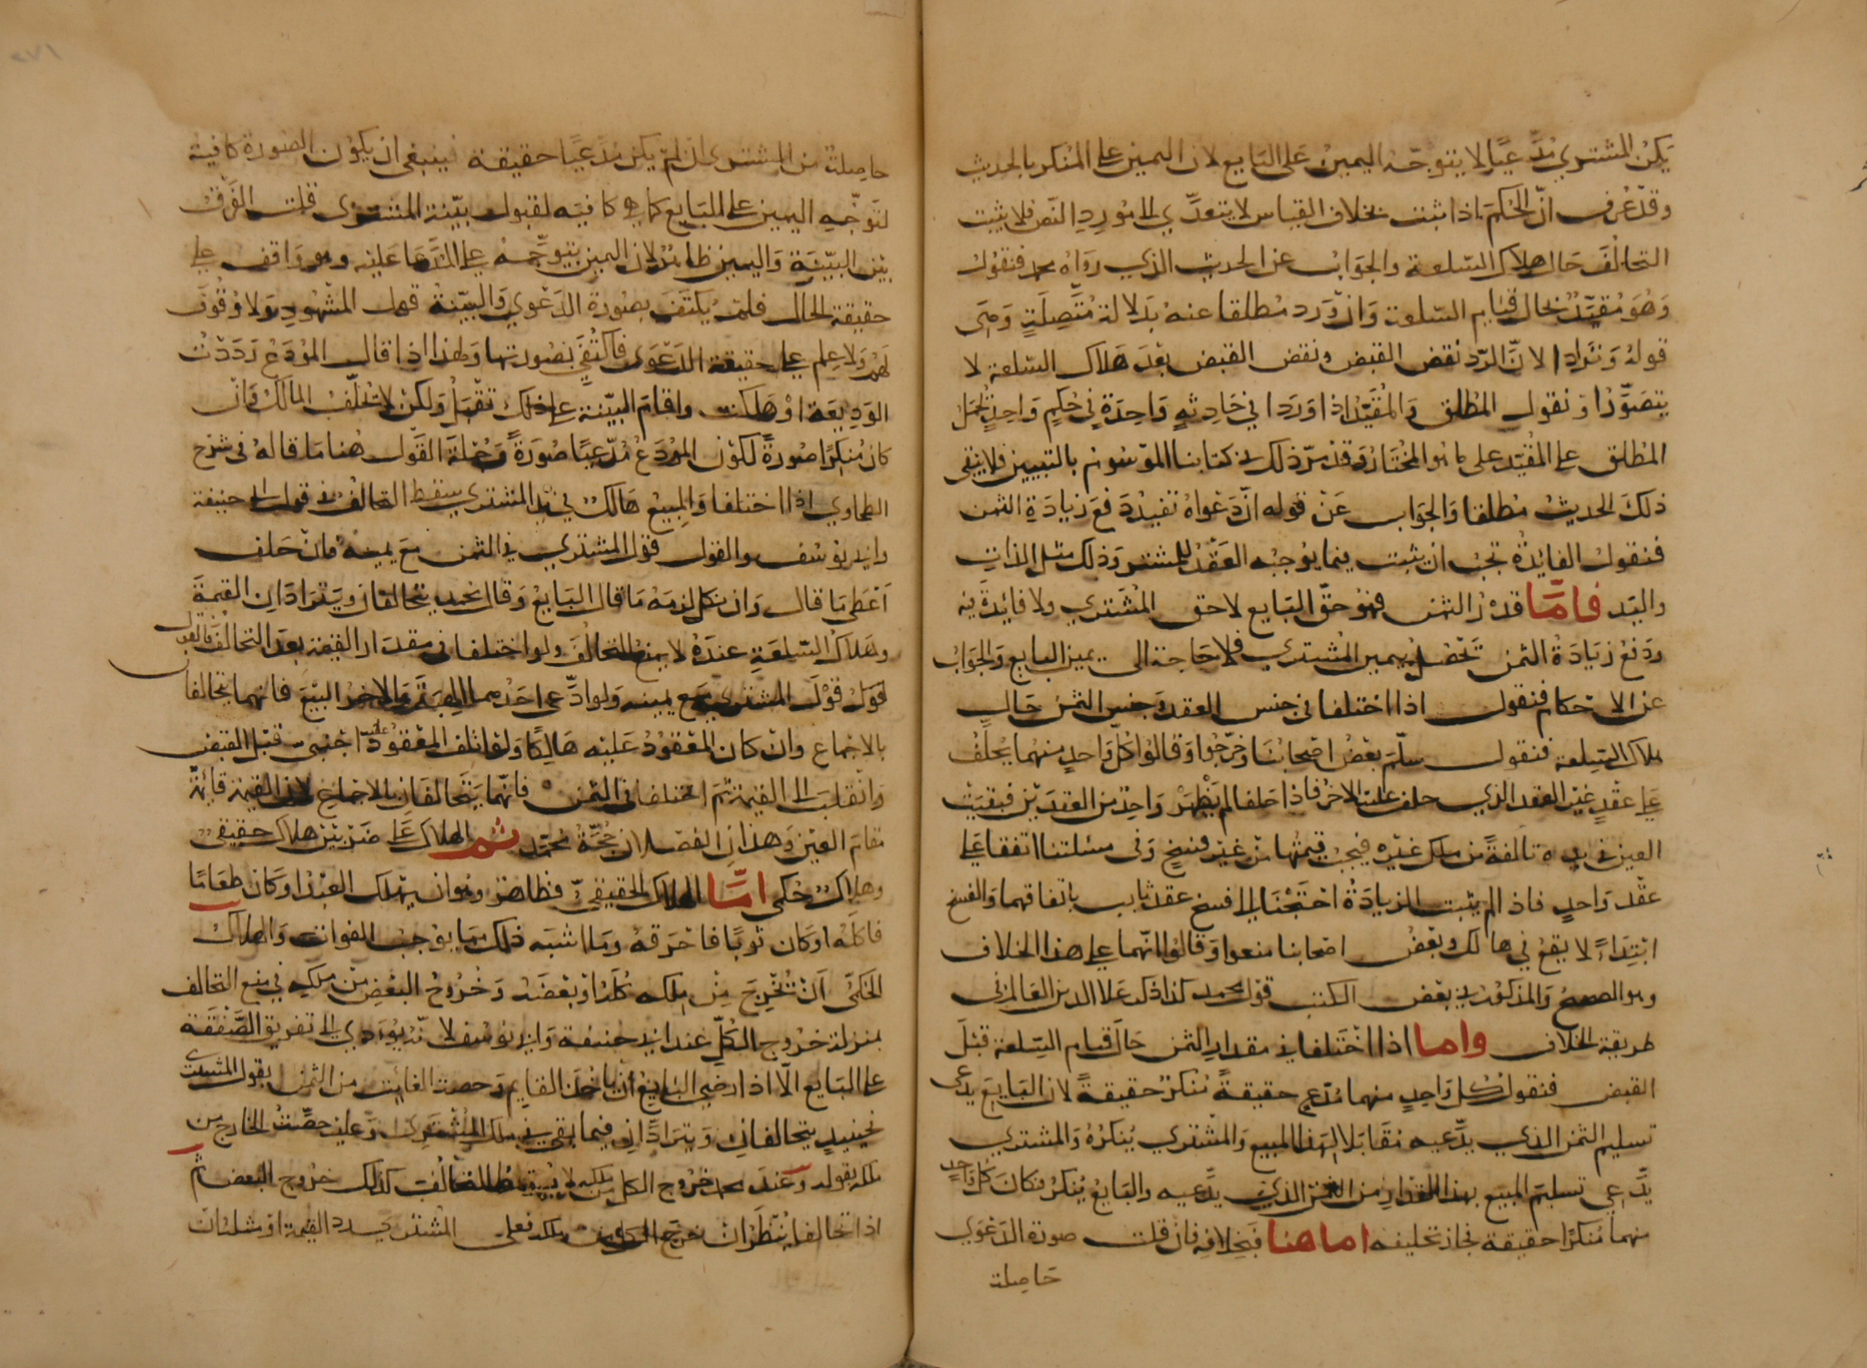 يكن المشتري مدّعيًا لا يتوجّه اليمين على البايع لان اليمين على المنكر بالحديث
وقد عُرف انّ الحكم اذا ثبت بخلاف القياس لا يتعدّي الى مورد النص فلا يثبت
التحالف حال هلاك السلعة والجواب عن الحديث الذي رواه محمد فنقول
وهو مقيّد بحال قيام السلعة وان ورد مطلقا عنه بدلالة متصلة وهي
قوله وترادا لانّ الرد نقض القبض ونقض القبض بعد هلاك السلعة لا
يتصوّر او نقول المطلق والمقيد اذا وردا في حادثة واحدة في حكم واحد يحمل
المطلق على المقيد على ما هو المختار وقد مرّ ذلك في كتابنا الموسوم بالتبيين فلا يبقى
ذلك الحديث مطلقا والجواب عن قوله انّ دعواه تفيد دفع زيادة الثمن
فنقول الفايدة تجب ان يثبت فيما يوجبه العقد للمشتر وذلك مثل الذات
واليد فامّا قدر الثمن فهو حق البايع لا حق المشتري ولا فايدة فيه
ودفع زيادة الثمن تحصل بيمين المشتري فلا حاجة الى يمين البايع والجواب
عن الاحكام فنقول اذا اختلفا في جنس العقد وجنس الثمن حال
هلاك السلعة فنقول سلّم بعض اصحابنا وخرّجوا وقالوا كل واحد منهما يحلف
على عقد غير العقد الذي حلف عليه الاخر فاذا حلفا لم يظهر واحد من العقدين فبقيت
العين في يده تالفة من ملك غيره فيجب قيمتها من غير فسخ وفي مسئلتنا اتفقا على
عقد واحد فاذا لم يثبت الزيادة احتجنا الى فسخ عقد ثابت باتفاقهما والفسخ
ابتداءً لا يقع في هالك وبعض اصحابنا منعوا وقالوا انهما على هذا الخلاف
وهو الصحيح والمذكور في بعض الكتب قول محمد كذا ذكر علا الدين العالم في
طريقة الخلاف واما اذا اختلفا في مقدار الثمن حال قيام السلعة قبل
القبض فنقول كل واحد منهما مدّع حقيقةً منكر حقيقةً لان البايع يدعى
تسليم الثمن الذي يدّعيه مقابلا لهذا المبيع والمشتري ينكره والمشتري
يدّعي تسليم المبيع بهذا المقدار من الثمن الذي يدّعيه والبايع ينكر فكان كل واحد
منهما منكرا حقيقة فجاز تحليفه اما هنا فبخلافه فان قلت صورة الدعوي
حاصلة
حاصلة من المشتري ان لم يكن مدّعيًا حقيقة فينبغي ان يكون الصورة كافية
لتوجّه اليمين على البايع كما هي كافيه لقبول بيّنة المشترى قلت الفرق
بين البيّنة واليمين ظاهر لان اليمين يتوجّه على المدّعا عليه وهو واقف على
حقيقة الحال فلم يكتف بصورة الدعوي والبيّنة قول المشهود ولا وقوف
لهم ولا علم على حقيقة الدعوى فاكتفي بصورتها ولهذا اذا قال المودع رددت
الوديعة او هلكت واقام البيّنة على ذلك تقبل ولكن لا يحلّف المالك وان
كان منكرا صورةً لكون المودع مدّعيًا صورةً وجملة القول هنا ما قاله في شرح
الطحاوي اذا اختلفا والمبيع هالك في يد المشتري سقط التحالف في قول ابي حنيفة
وابي يوسف والقول قول المشتري في الثمن مع يمينه فان حلف
اعطى ما قال وان نكل لزمه ما قال البايع وقال محمد يتحالفان ويترادان القيمة
وهلاك السلعة عنده لا يمنع التحالف ولو اختلفا في مقدار القيمة بعد التحالف فالقول
قول المشتري مع يمينه ولو ادّعى احدهما الهبة والاخر البيع فانهما يتحالفان
بالاجماع وان كان المعقود عليه هالكا ولو اتلف المعقود عليه اجنبي قبل القبض
وانقلب الى القيمة ثم اختلفا في الثمن فانهما يتحالفان بالاجماع لان القيمة قائمة
مقام العين وهذان الفصلان حجّة محمّد ثم الهلاك على ضربين هلاك حقيقي
وهلاك حكمي امّا الهلاك الحقيقي فظاهر وهو ان يهلك العبد او كان طعاما
فاكله او كان ثوبًا فاحرقه وما اشبه ذلك مما يوجب الفوات والهلاك
الحكمي ان يخرج من ملكه كله او بعضه وخروج البعض من ملكه في منع التحالف
بمنزلة خروج الكل عند ابي حنيفة وابي يوسف لانه يؤدي الى تفريق الصفقة
على البايع الا اذا رضي البايع ان ياخذ القايم وحصة الفائت من الثمن بقول المشتري
فحينيذ يتحالفان ويترادان فيما بقي في ملك المشتري وعليه حصّة الخارج من
ملكه بقوله وعند محمد خروج الكل من ملكه لا يمنع التحالف كذلك خروج البعض ثم
اذا تحالفا ينظر ان خرج الكل من ملكه فعلى المشتري رد القيمة او مثله ان